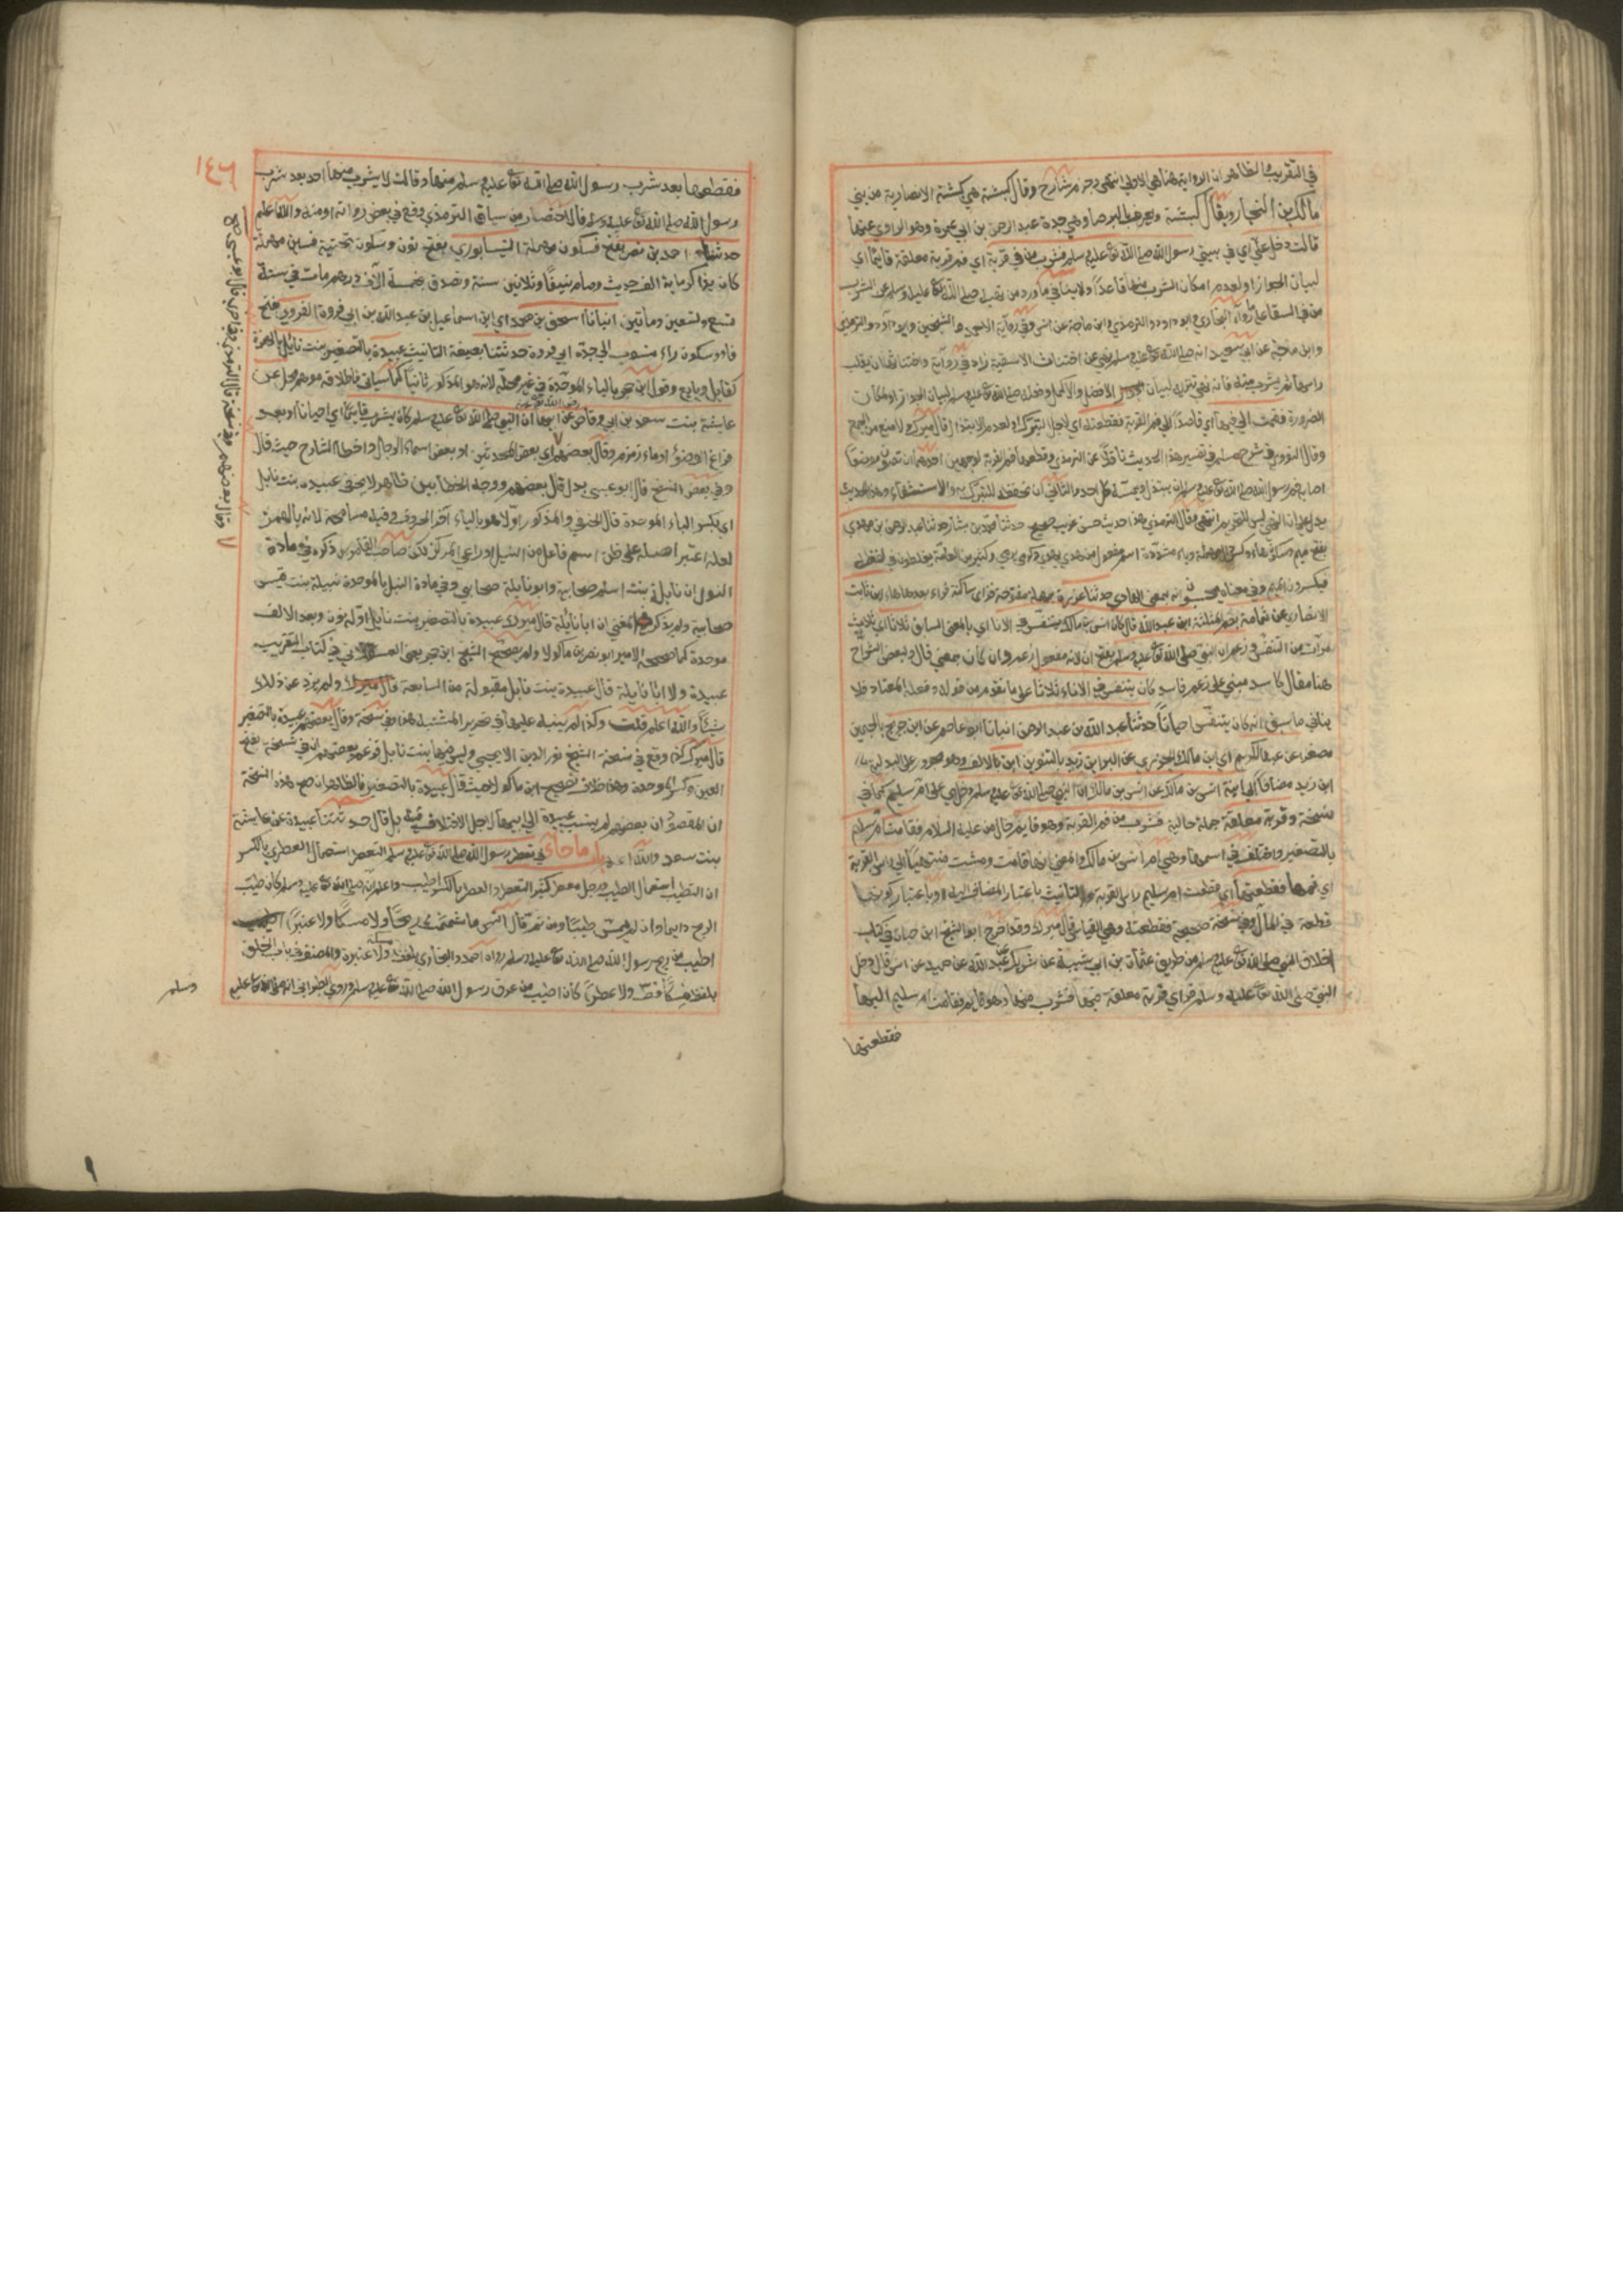 في التقريب فالظاهر ان الرواية هنا هي الاولى انتهى وجزم شارح وقال كبشة هي كبشة الانصارية من بني
مالك بن النجار ويقال كبيشة وتعرف بالبرصا وهي جدة عبد الرحمن بن ابي عمرة وهو الراوي عنها
قالت دخل علي اي في بيتي رسول الله صلى الله تع عليه وسلم فشرب من في قربة اي فم قربة معلقة قايما اي
لبيان الجواز او لعدم امكان الشرب منها قاعدا ولا ينافي ما ورد من نهيه صلى الله تع عليه وسلم عن الشرب
من في السقا على ما رواه البخاري وابو داود والترمذي وابن ماجة عن انس وفي رواية
وابن ماجة عن ابي سعيد انه صلى الله تع عليه وسلم نهى عن اختناث الاسقية زاد في رواية واختناثها ان يقلب
راسها ثم يشرب منه فانه نهي تنزيه لبيان الافضل والاكمل وفعله صلى الله تع عليه وسلم لبيان الجواز او لمكان
الضرورة فقمت الى فيها اي قاصدا الى فم القربة فقطعته اي لاجل التبرك او لعدم الابتذال قال ميرك ولا منع من الجمع
وقال النووي في شرح مسلم في تفسير هذا الحديث ناقلا عن الترمذي وقطعها فم القربة لوجهين احدهما ان تصون موضعا
اصابه فم رسول الله صلى الله تع عليه وسلم ان يبتذل ويمسه كل احد والثاني ان تحفظه للتبرك به والاستشفاء وهذا الحديث
يدل على ان النهي ليس للتحريم انتهى وقال الترمذي هذا حديث حسن غريب صحيح حدثنا محمد بن بشار حدثنا عبد الرحمن بن مهدي
بفتح ميم وسكون هاء وكسر المهملة وياء مشددة اسم مفعول من هدى يهدي كرمى يرمي وكثير من العامة يغلطون في لفظه
فيكسرون الميم وفي معناه انه بمعنى الهادي حدثنا عزرة بمهملة مفتوحة فزاي ساكنة فراء بعدها هاء ابن ثابت
الانصاري عن ثمامة بضم المثلثة ابن عبد الله قال كان انس بن مالك يتنفس في الاناء اي بالمعنى السابق ثلاثا اي ثلاث
مرات من التنفس وزعم ان النبي صلى الله تع عليه وسلم بفتح ان لانه مفعول زعم وان كان بمعنى قال ولبعض الشراح
هنا مقال كاسد مبني على زعم فاسد كان يتنفس في الاناء ثلاثا على ما تقوم من قوله وفعله المعتاد فلا
ينافي ما سبق انه كان يتنفس احيانا حدثنا عبد الله بن عبد الرحمن انبانا ابو عاصم عن ابن جريج بالجيمين
مصغرا عن عبد الكريم اي ابن مالك الجزري عن البراء بن زيد بالتنوين ابن بالالف وهو مجرور على البدلية
ابن زيد مضافا الى ابنة انس بن مالك عن انس بن مالك ان النبي صلى الله تع عليه وسلم دخل اي على ام سليم كما في
نسخة وقربة معلقة جملة حالية فشرب من فم القربة وهو قايم حال من عليه السلام فقامت ام سليم
بالتصغير واختلف في اسمها وهي ام انس بن مالك والمعنى انها قامت ومشت منتهيا الى راس القربة
اي فمها فقطعتها اي قطعت ام سليم راس القربة والتانيث باعتبار المضاف اليه او باعتبار كونها
قطعة في المآل وفي نسخة صحيحة فقطعته وهي القياس قال ميرك وقد اخرج ابو الشيخ ابن حبان في كتاب
اخلاق النبي صلى الله تع عليه وسلم من طريق عثمان بن ابي شيبة عن شريك عن عبد الله عن حميد عن انس قال دخل
النبي صلى الله تع عليه وسلم فراى قربة معلقة فيها فشرب منها وهو قايم فقامت ام سليم اليها
فقطعتها
١٤٦
فقطعها بعد شرب رسول الله صلى الله تع عليه وسلم منها وقالت لا يشرب منها احد بعد شرب
رسول الله صلى الله تع عليه وسلم قال اختصار من سياق الترمذي وقع في بعض رواته او منه والله اعلم
حدثنا احمد بن نصر بفتح فسكون مهملة النيسابوري بفتح نون وسكون تحتية فسين مهملة
كان يذاكر ماية الف حديث وصام نيفا وثلاثين سنة وتصدق بخمسة آلاف درهم مات في سنة
تسع وتسعين ومأتين انبانا اسحق بن محمد اي ابن اسماعيل بن عبد الله بن ابي فروة الفروي بفتح
فاء وسكون راء منسوب الى جده ابي فروة حدثتنا بصيغة التانيث عبيدة بالتصغير بنت نايل بالهمزة
كقايل وبايع وقول ابن حجر بالياء الموحدة في غير محله لانه هو المذكور ثانيا كما سياتي فاطلاقه موهم مخل عن
عايشة بنت سعد بن ابي وقاص رضي الله تع عنه عن ابيها ان النبي صلى الله تع عليه وسلم كان يشرب قايما اي احيانا او بعد
فراغ الوضوء او ماء زمزم وقال بعضهم اي بعض المحدثين او بعض اسماء الرجال واخطا الشارح حيث قال
وفي بعض النسخ قال ابو عيسى بدل قال بعضهم ووجه الخطا بين ظاهر لا يخفى عبيدة بنت نابل
اي بكسر الباء الموحدة قال الحنفي والمذكور اولا هو بالياء آخر الحروف وفيه مسامحة لانه بالهمز
لعله اعتبر اصله على ظن اسم فاعل من النيل او راعى المركز لكن صاحب القاموس ذكره في مادة
النول ان نايلة بنت اسلم صحابية وابو نايلة صحابي وفي مادة النبل بالموحدة نبيلة بنت قيس
صحابية ولم يذكر في المغني ان ابا نايلة قال ميرك عبيدة بالتصغير بنت نايل اوله نون وبعد الالف
موحدة كما صححه الامير ابو نصر بن ماكولا ولم يصحح الشيخ ابن حجر يعني العسقلاني في كتاب التقريب
عبيدة ولا ابا نايلة قال عبيدة بنت نابل مقبولة من السابعة قال ميرك ولم يزد عن ذلك
شيئا والله اعلم قلت وكذا لم ينبه عليها في تحرير المشتبه هذا وفي نسخة وقال بعضهم عبيدة بالتصغير
قال ميرك كذا وقع في نسخة الشيخ نور الدين الايجي وليس فيها بنت نابل فزعم بعضهم ان في نسخة بفتح
العين وكسر الموحدة وهذا خلاف تصحيح ابن ماكولا حيث قال عبيدة بالتصغير فالظاهر ان صح هذه النسخة
ان المقصود ان بعضهم لم ينسب عبيدة الى ابيها لاجل الاختلاف فيه بل قال حدثتنا عبيدة عن عايشة
بنت سعد والله اعلم باب ما جاء في تعطر رسول الله صلى الله تع عليه وسلم التعطر استعمال العطر بالكسر
ان التطيب استعمال الطيب ورجل معطر كثير التعطر والعطر بالكسر الطيب واعلم انه صلى الله تع عليه وسلم كان طيب
الريح دايما وان لم يمس طيبا ومن ثم قال انس ما شممت ريحا ولا مسكا ولا عنبرا
اطيب من ريح رسول الله صلى الله تع عليه وسلم رواه احمد والبخاري بلفظ مسكة ولا عنبرة والمصنف في باب الخلق
بلفظ مسكا قط ولا عطرا كان اطيب من عرق رسول الله صلى الله تع عليه وسلم وروى الطبراني انه صلى الله تع عليه
وسلم